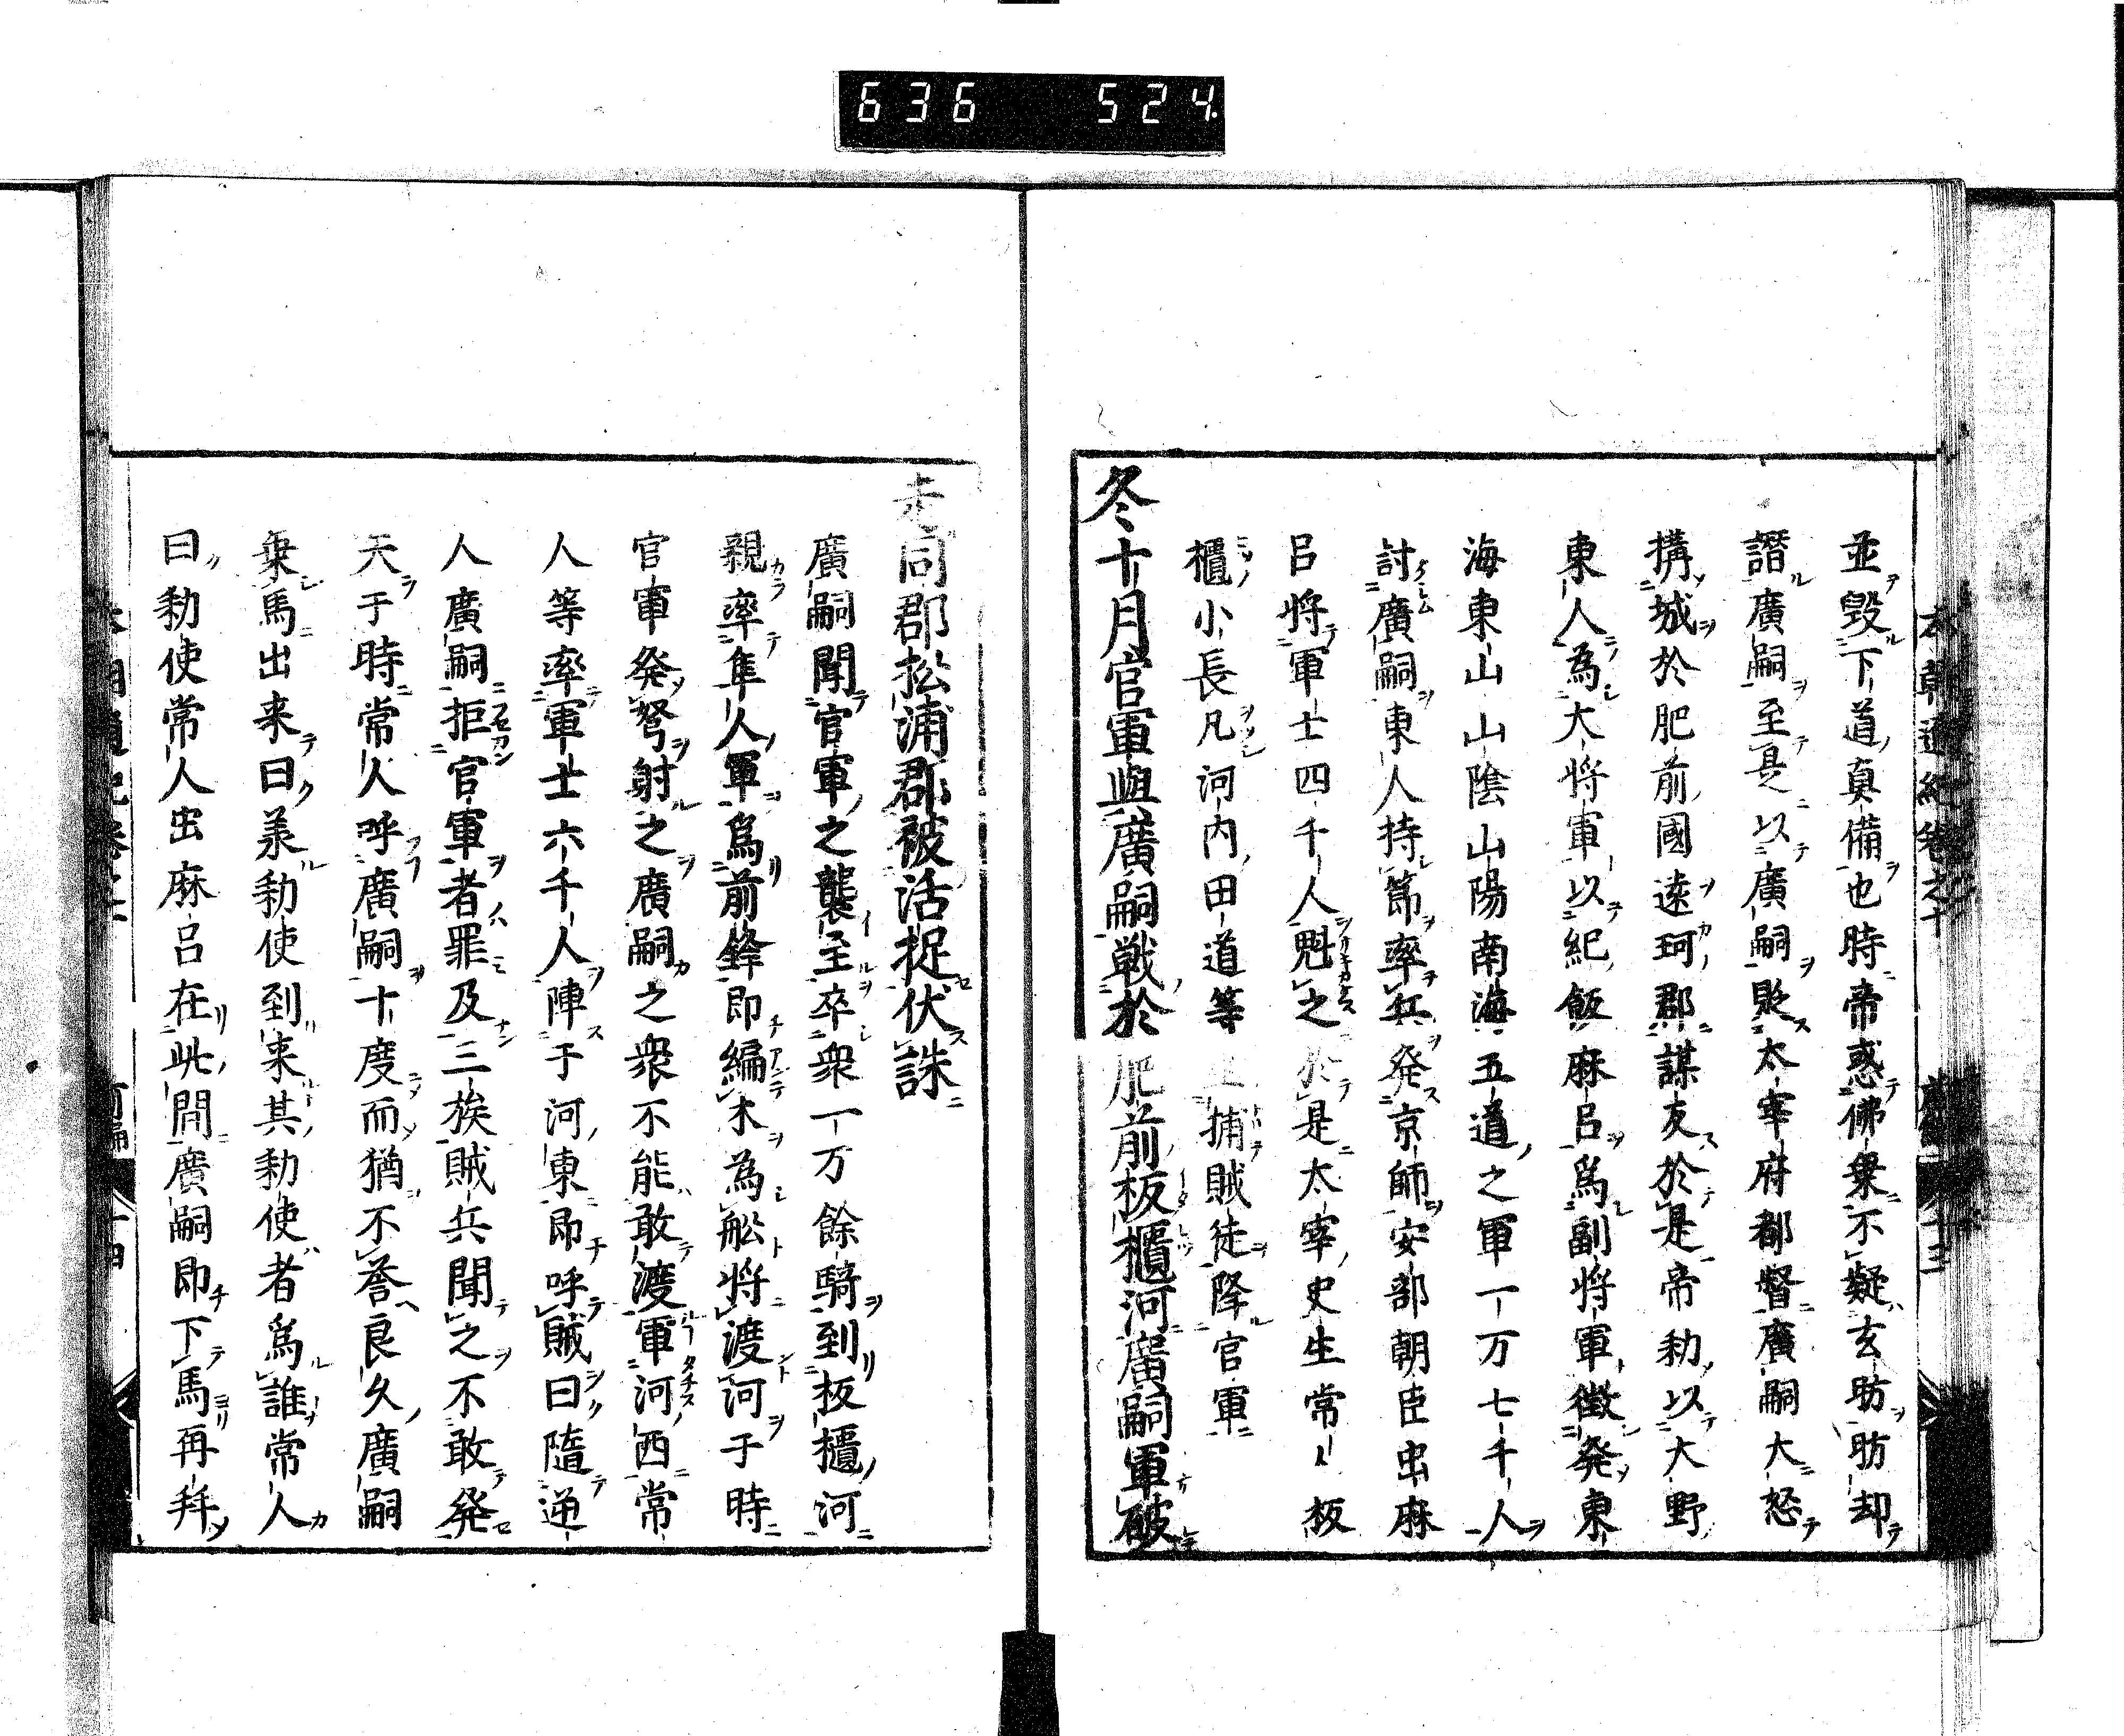 636 524
並毀下道真備也時帝惑佛衆不疑玄昉昉却
譖廣嗣至是以廣嗣貶太宰府都督廣嗣大怒
搆城於肥前國遠珂郡謀反於是帝勅以大野
東人為大將軍以紀飯麻呂爲副將軍徵発東
海東山山陰山陽南海五道之軍一万七千人
討廣嗣東人持節率兵発京師安部朝臣虫麻
呂将軍士四千人魁之於是太宰史生常人板
櫃小長凡河内田道等並捕賊徒降官軍
冬十月官軍與廣嗣戦於肥前板櫃河廣嗣軍破
走同郡松浦郡被活捉伏誅
廣嗣聞官軍之襲至卒衆一万餘騎到板櫃河
親率隼人軍爲前鋒即編木為舩将渡河于時
官軍発弩射之廣嗣之衆不能敢渡軍河西常
人等率軍士六千人陣于河東即呼賊曰隨逆
人廣嗣拒官軍者罪及三族賊兵聞之不敢発
矢于時常人呼廣嗣十度而猶不荅良久廣嗣
乗馬出来曰羕勅使到来其勅使者爲誰常人
曰勅使常人虫麻呂在此間廣嗣即下馬再拜